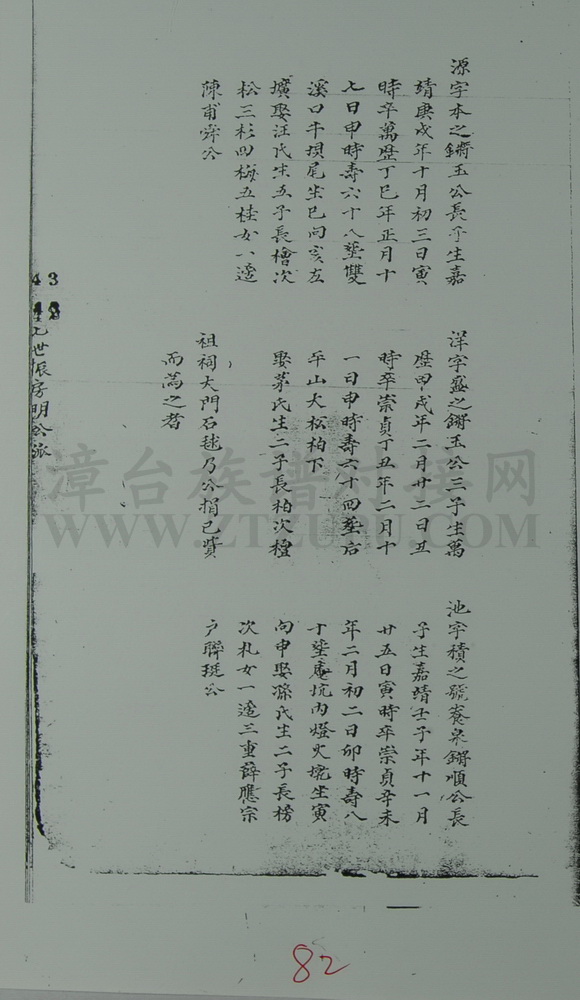 源字本之鏘玉公長子生嘉
靖庚戌年十月初三日寅
時卒萬歷丁巳年正月十
七日申時壽六十八塟雙
溪口牛埧尾坐巳向亥左
壙娶汪氏生五子長檜次
松三杉四梅五桂女一適
陳甫舜公
洋字盛之鏘玉公三子生萬
歷甲戌年二月廿二日丑
時卒崇貞丁丑年二月十
一日申時壽六十四塟后
平山大松柏下
娶茅氏生二子長柏次橙
祖祠大門石毬乃公捐己貲
而為之者
池字積之號養泉鏘順公長
子生嘉靖壬子年十一月
廿五日寅時卒崇貞辛未
年二月初二日卯時壽八
十塟庵坑內燈火垸坐寅
向申娶孫氏生二子長榜
次札女一適三重薛應宗
戶聯珽公
43
世振房明公派
漳台族谱对接网
WWW.ZTZUPU.COM
82